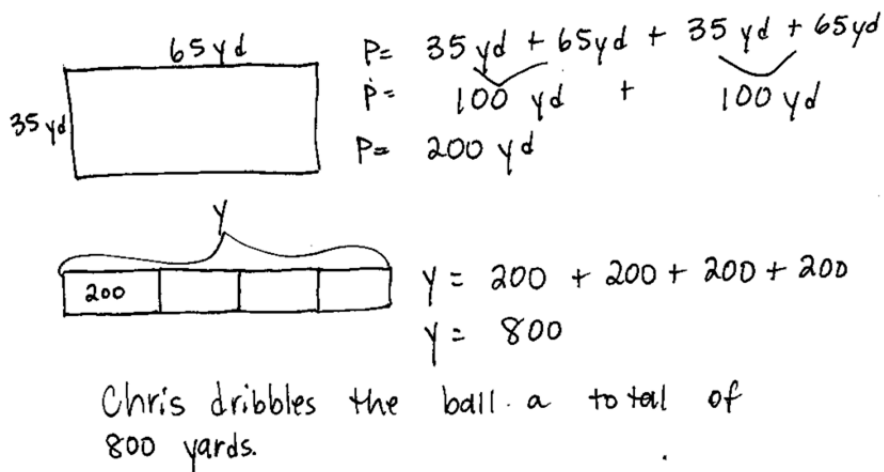 65 yd
35 yd
P= 35 yd + 65 yd + 35 yd + 65 yd
P= 100 yd + 100 yd
P= 200 yd
y
200
y = 200 + 200 + 200 + 200
y = 800
Chris dribbles the ball a total of
800 yards.